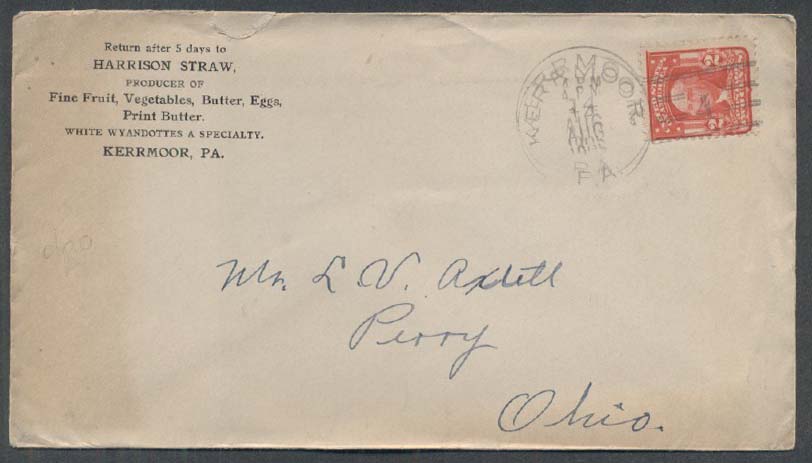 Return after 5 days to
HARRISON STRAW,
PRODUCER OF
Fine Fruit, Vegetables, Butter, Eggs,
Print Butter.
WHITE WYANDOTTES A SPECIALTY.
KERRMOOR, PA.
KERRMOOR
PA
2 2
Mr. L. V. Axtell
Perry
Ohio.